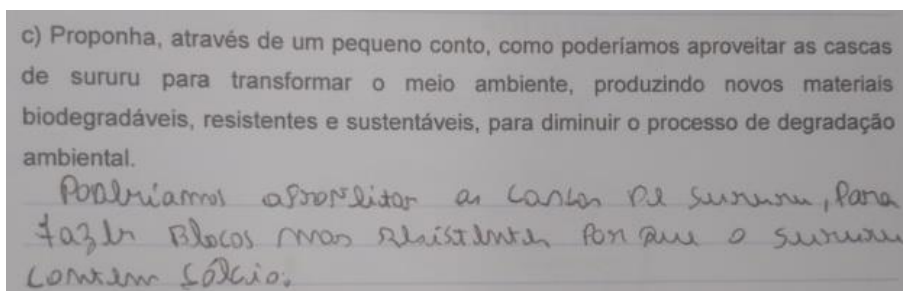 c) Proponha, através de um pequeno conto, como poderíamos aproveitar as cascas
de sururu para transformar o meio ambiente, produzindo novos materiais
biodegradáveis, resistentes e sustentáveis, para diminuir o processo de degradação
ambiental.
Poderiamos aproveitar as cascas de sururu, para
fazer Blocos mas resistentes por que o sururu
contem Cálcio.